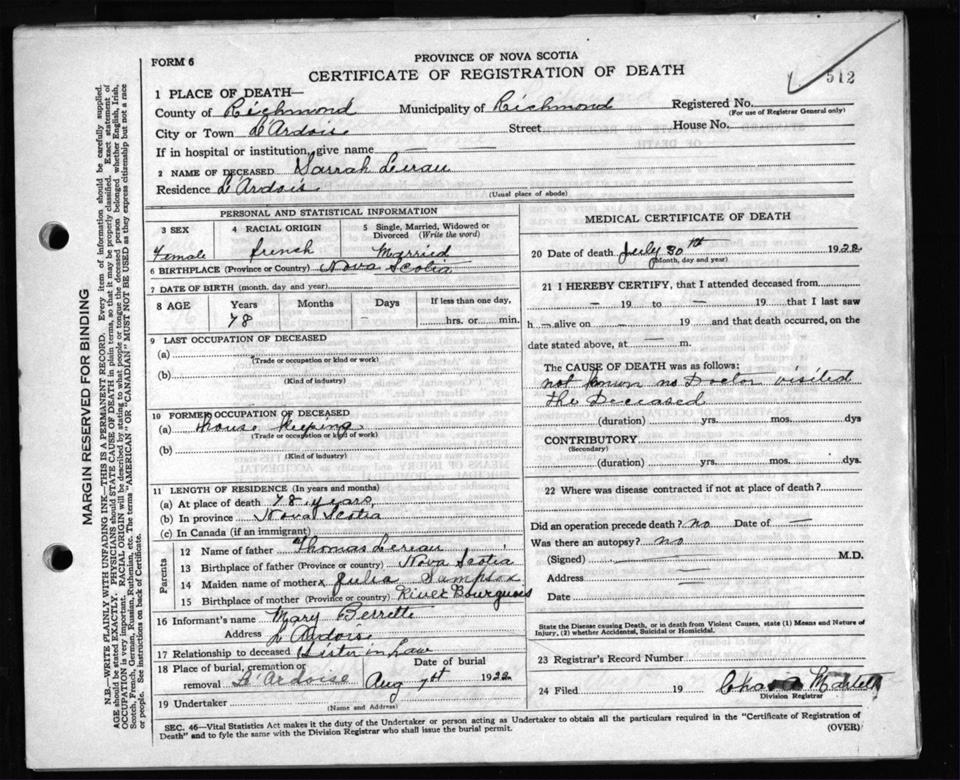 FORM 6
PROVINCE OF NOVA SCOTIA
CERTIFICATE OF REGISTRATION OF DEATH
512
1 PLACE OF DEATH—
County of Richmond Municipality of Richmond Registered No.
(For use of Registrar General only)
City or Town L'Ardoise Street House No.
If in hospital or institution, give name — —
2 NAME OF DECEASED Sarrah
Residence L'Ardois
(Usual place of abode)
PERSONAL AND STATISTICAL INFORMATION
3 SEX
Female
4 RACIAL ORIGIN
french
5 Single, Married, Widowed or Divorced (Write the word)
Married
6 BIRTHPLACE (Province or Country) Nova Scotia
7 DATE OF BIRTH (month, day and year)
8 AGE Years Months Days If less than one day,
78 – hrs. or min.
9 LAST OCCUPATION OF DECEASED
(a)
(Trade or occupation or kind of work)
(b)
(Kind of industry)
10 FORMER OCCUPATION OF DECEASED
(a) House keeping
(Trade or occupation or kind of work)
(b)
(Kind of industry)
11 LENGTH OF RESIDENCE (In years and months)
(a) At place of death 78 years
(b) In province Nova Scotia
(c) In Canada (if an immigrant)
Parents
12 Name of father Thomas
13 Birthplace of father (Province or country) Nova Scotia
14 Maiden name of mother Julia Sampson
15 Birthplace of mother (Province or country) River Bourgeois
16 Informant's name Mary Berrette
Address L'Ardoise
17 Relationship to deceased Sister in Law
18 Place of burial, cremation or removal L'Ardoise
Date of burial
Aug 1st 1922
19 Undertaker
(Name and Address)
MEDICAL CERTIFICATE OF DEATH
20 Date of death July 30th 1922
(Month, day and year)
21 I HEREBY CERTIFY, that I attended deceased from
– 19 to – 19 that I last saw
h – alive on – 19 and that death occurred, on the
date stated above, at — m.
The CAUSE OF DEATH was as follows:
not known no Doctor visited
the Deceased
(duration) yrs. mos. dys
CONTRIBUTORY
(Secondary)
(duration) yrs. mos. dys.
22 Where was disease contracted if not at place of death?
Did an operation precede death? no Date of —
Was there an autopsy? no
(Signed) — M.D.
Address —
Date
State the Disease causing Death, or in death from Violent Causes, state (1) Means and Nature of
Injury, (2) whether Accidental, Suicidal or Homicidal.
23 Registrar's Record Number
24 Filed 19
Division Registrar
SEC. 46—Vital Statistics Act makes it the duty of the Undertaker or person acting as Undertaker to obtain all the particulars required in the "Certificate of Registration of
Death" and to fyle the same with the Division Registrar who shall issue the burial permit.
(OVER)
MARGIN RESERVED FOR BINDING
N.B.—WRITE PLAINLY WITH UNFADING INK—THIS IS A PERMANENT RECORD. Every item of information should be carefully supplied.
AGE should be stated EXACTLY. PHYSICIANS should STATE CAUSE OF DEATH in plain terms, so that it may be properly classified. Exact statement of
OCCUPATION is very important. RACIAL ORIGIN will be described by stating to what people or tongue the deceased person belonged whether English, Irish,
Scotch, French, German, Russian, Ruthenian, etc. The terms "AMERICAN" OR "CANADIAN" MUST NOT BE USED as they express citizenship but not a race
or people. See instructions on back of Certificate.